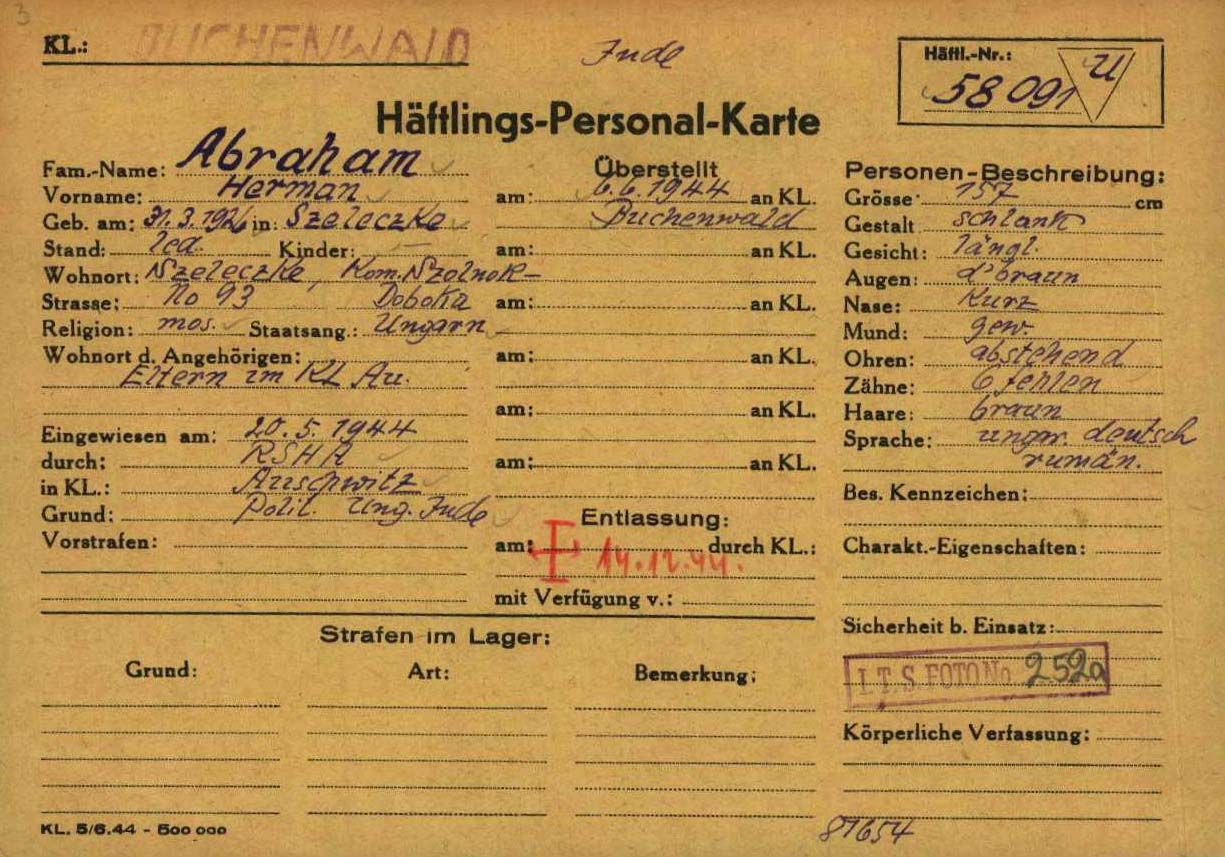 3
KL.: BUCHENWALD
Jude
Häftl.-Nr.:
58 091
U
Häftlings-Personal-Karte
Fam.-Name: Abraham
Vorname: Herman
Geb. am: 31.3.1926 in: Szeleczke
Stand: led. Kinder: —
Wohnort: Szeleczke, Kom. Szolnok-
Strasse: No 93 Doboka
Religion: mos. Staatsang.: Ungarn
Wohnort d. Angehörigen:
Eltern im KL Au.
Eingewiesen am: 20.5.1944
durch: RSHA
in KL.: Auschwitz
Grund: Polit. Ung. Jude
Vorstrafen:
Überstellt
am: 6.6.1944 an KL.
Buchenwald
am: an KL.
am: an KL.
am: an KL.
am: an KL.
am: an KL.
Entlassung:
am: 14.12.44. durch KL.:
mit Verfügung v.:
Personen-Beschreibung:
Grösse: 157 cm
Gestalt schlank
Gesicht: längl.
Augen: d'braun
Nase: Kurz
Mund: gew.
Ohren: abstehend
Zähne: 6 fehlen
Haare: braun
Sprache: ungar. deutsch
rumän.
Bes. Kennzeichen:
Charakt.-Eigenschaften:
Sicherheit b. Einsatz:
I.T.S. FOTO No 252a
Körperliche Verfassung:
Strafen im Lager:
Grund: Art: Bemerkung:
KL. 5/6.44 - 500 000
87654